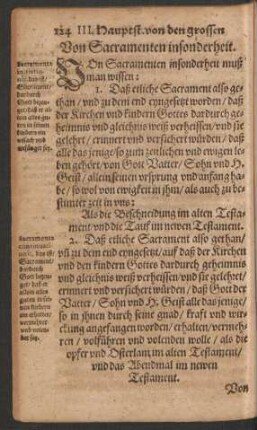 124 III. Hauptst. von den grossen
Von Sacramenten insonderheit.
VOn Sacramenten insonderheit muß
man wissen:
1. Daß etliche Sacrament also ge-
than/ vnd zu dem end eyngesetzt worden/ daß
der Kirchen vnd kindern Gottes dardurch ge-
heimnus vnd gleichnus weiß verheissen/ vnd sie
gelehrt/ erinnert vnd versichert würden/ daß
alle das jenige/ so zum zeitlichen vnd ewigen le-
ben gehört/ von Gott Vatter/ Sohn vnd H.
Geist/ allein seinen vrsprung vnd anfang ha-
be/ so wol von ewigkeit in jhm/ als auch zu be-
stimter zeit in vns:
Als die Beschneidung im alten Testa-
ment/ vnd die Tauf im newen Testament.
2. Daß etliche Sacrament also gethan/
vnd zu dem end eyngesetzt/ auf daß der Kirchen
vnd den kindern Gottes dardurch geheimnus
vnd gleichnus weiß verheissen/ vnd sie gelehrt/
erinnert vnd versichert würden/ daß Gott der
Vatter/ Sohn vnd H. Geist alle das jenige/
so in jhnen durch seine gnad/ kraft vnd wir-
ckung angefangen worden/ erhalten/ vermeh-
ren/ volführen vnd volenden wolle/ als die
opfer vnd Osterlam im alten Testament/
vnd das Abendmal im newen
Testament.
Von